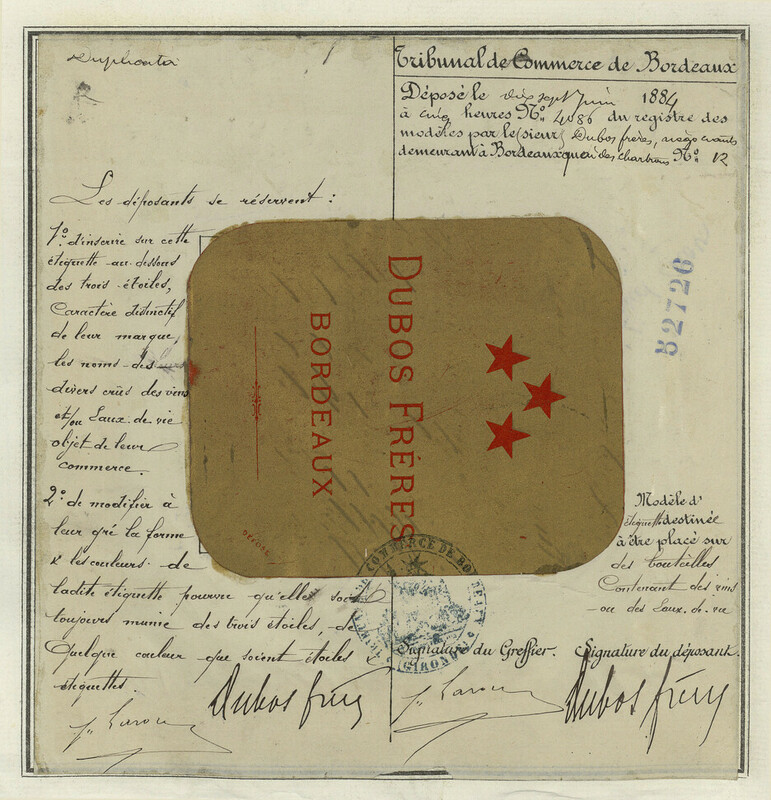 Duplicata
Tribunal de Commerce de Bordeaux
Déposé le dix sept Juin 1884
à cinq heures No. 4086 du registre des
modèles par le sieur Dubos frères, négociants
demeurant à Bordeaux quai des chartrons No. 12
Les déposants se réservent :
1o. d'inscrire sur cette
étiquette au-dessous
des trois étoiles,
Caractère distinctif
de leur marque,
les noms des
divers crûs des vins
et/ou Eaux de vie
objet de leur
commerce.
2o. de modifier à
leur gré la forme
& les couleurs de
ladite étiquette pourvu qu'elles soient
toujours munie des trois étoiles, de
quelque couleur que soient étoiles &
étiquettes.
DUBOS FRÈRES
BORDEAUX
DÉPOSÉ
52726
Modèle d'
étiquette destinée
à être placé sur
des bouteilles
Contenant des vins
ou des Eaux de vie
COMMERCE DE BORDEAUX
(GIRONDE)
Signature du Greffier. Signature du déposant.
Dubos frères
Dubos frères